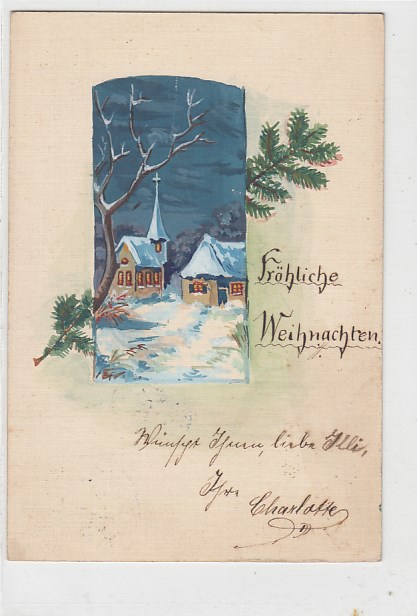 Fröhliche
Weihnachten.
Wünscht Ihnen, liebe Illi,
Ihre
Charlotte